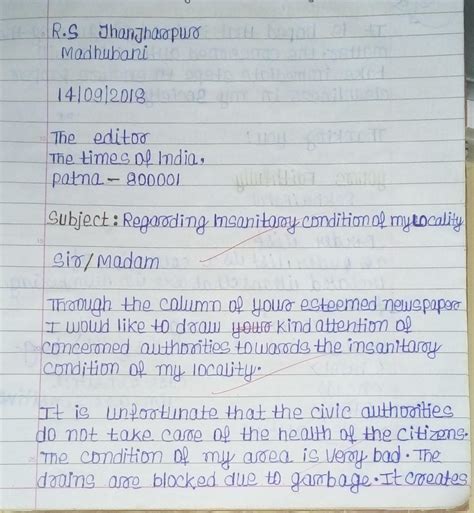 R.S Jhanjharpur
Madhubani
14/09/2018
The editor
The times of India,
patna - 800001
Subject: Regarding Insanitary condition of my Locality
Sir/Madam
Through the column of your esteemed newspaper
I would like to draw your kind attention of
concerned authorities towards the insanitary
condition of my locality.
It is unfortunate that the civic authorities
do not take care of the health of the citizens.
The condition of my area is very bad. The
drains are blocked due to garbage. It creates